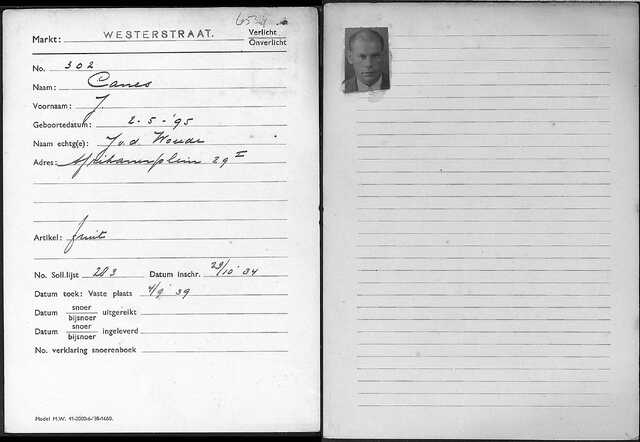 Markt: WESTERSTRAAT. Verlicht
Onverlicht
No. 302
Naam: Canes
Voornaam: J.
Geboortedatum: 2-5-'95
Naam echtg(e): J. v. d. Woude
Adres: Afrikanerplein 29 I
Artikel: fruit
No. Soll.lijst 203 Datum inschr. 29/10 '34
Datum toek: Vaste plaats 4/9 '39
Datum snoer
bijsnoer uitgereikt
Datum snoer
bijsnoer ingeleverd
No. verklaring snoerenboek
Model M.W. 41-2000-6-'38-1660.